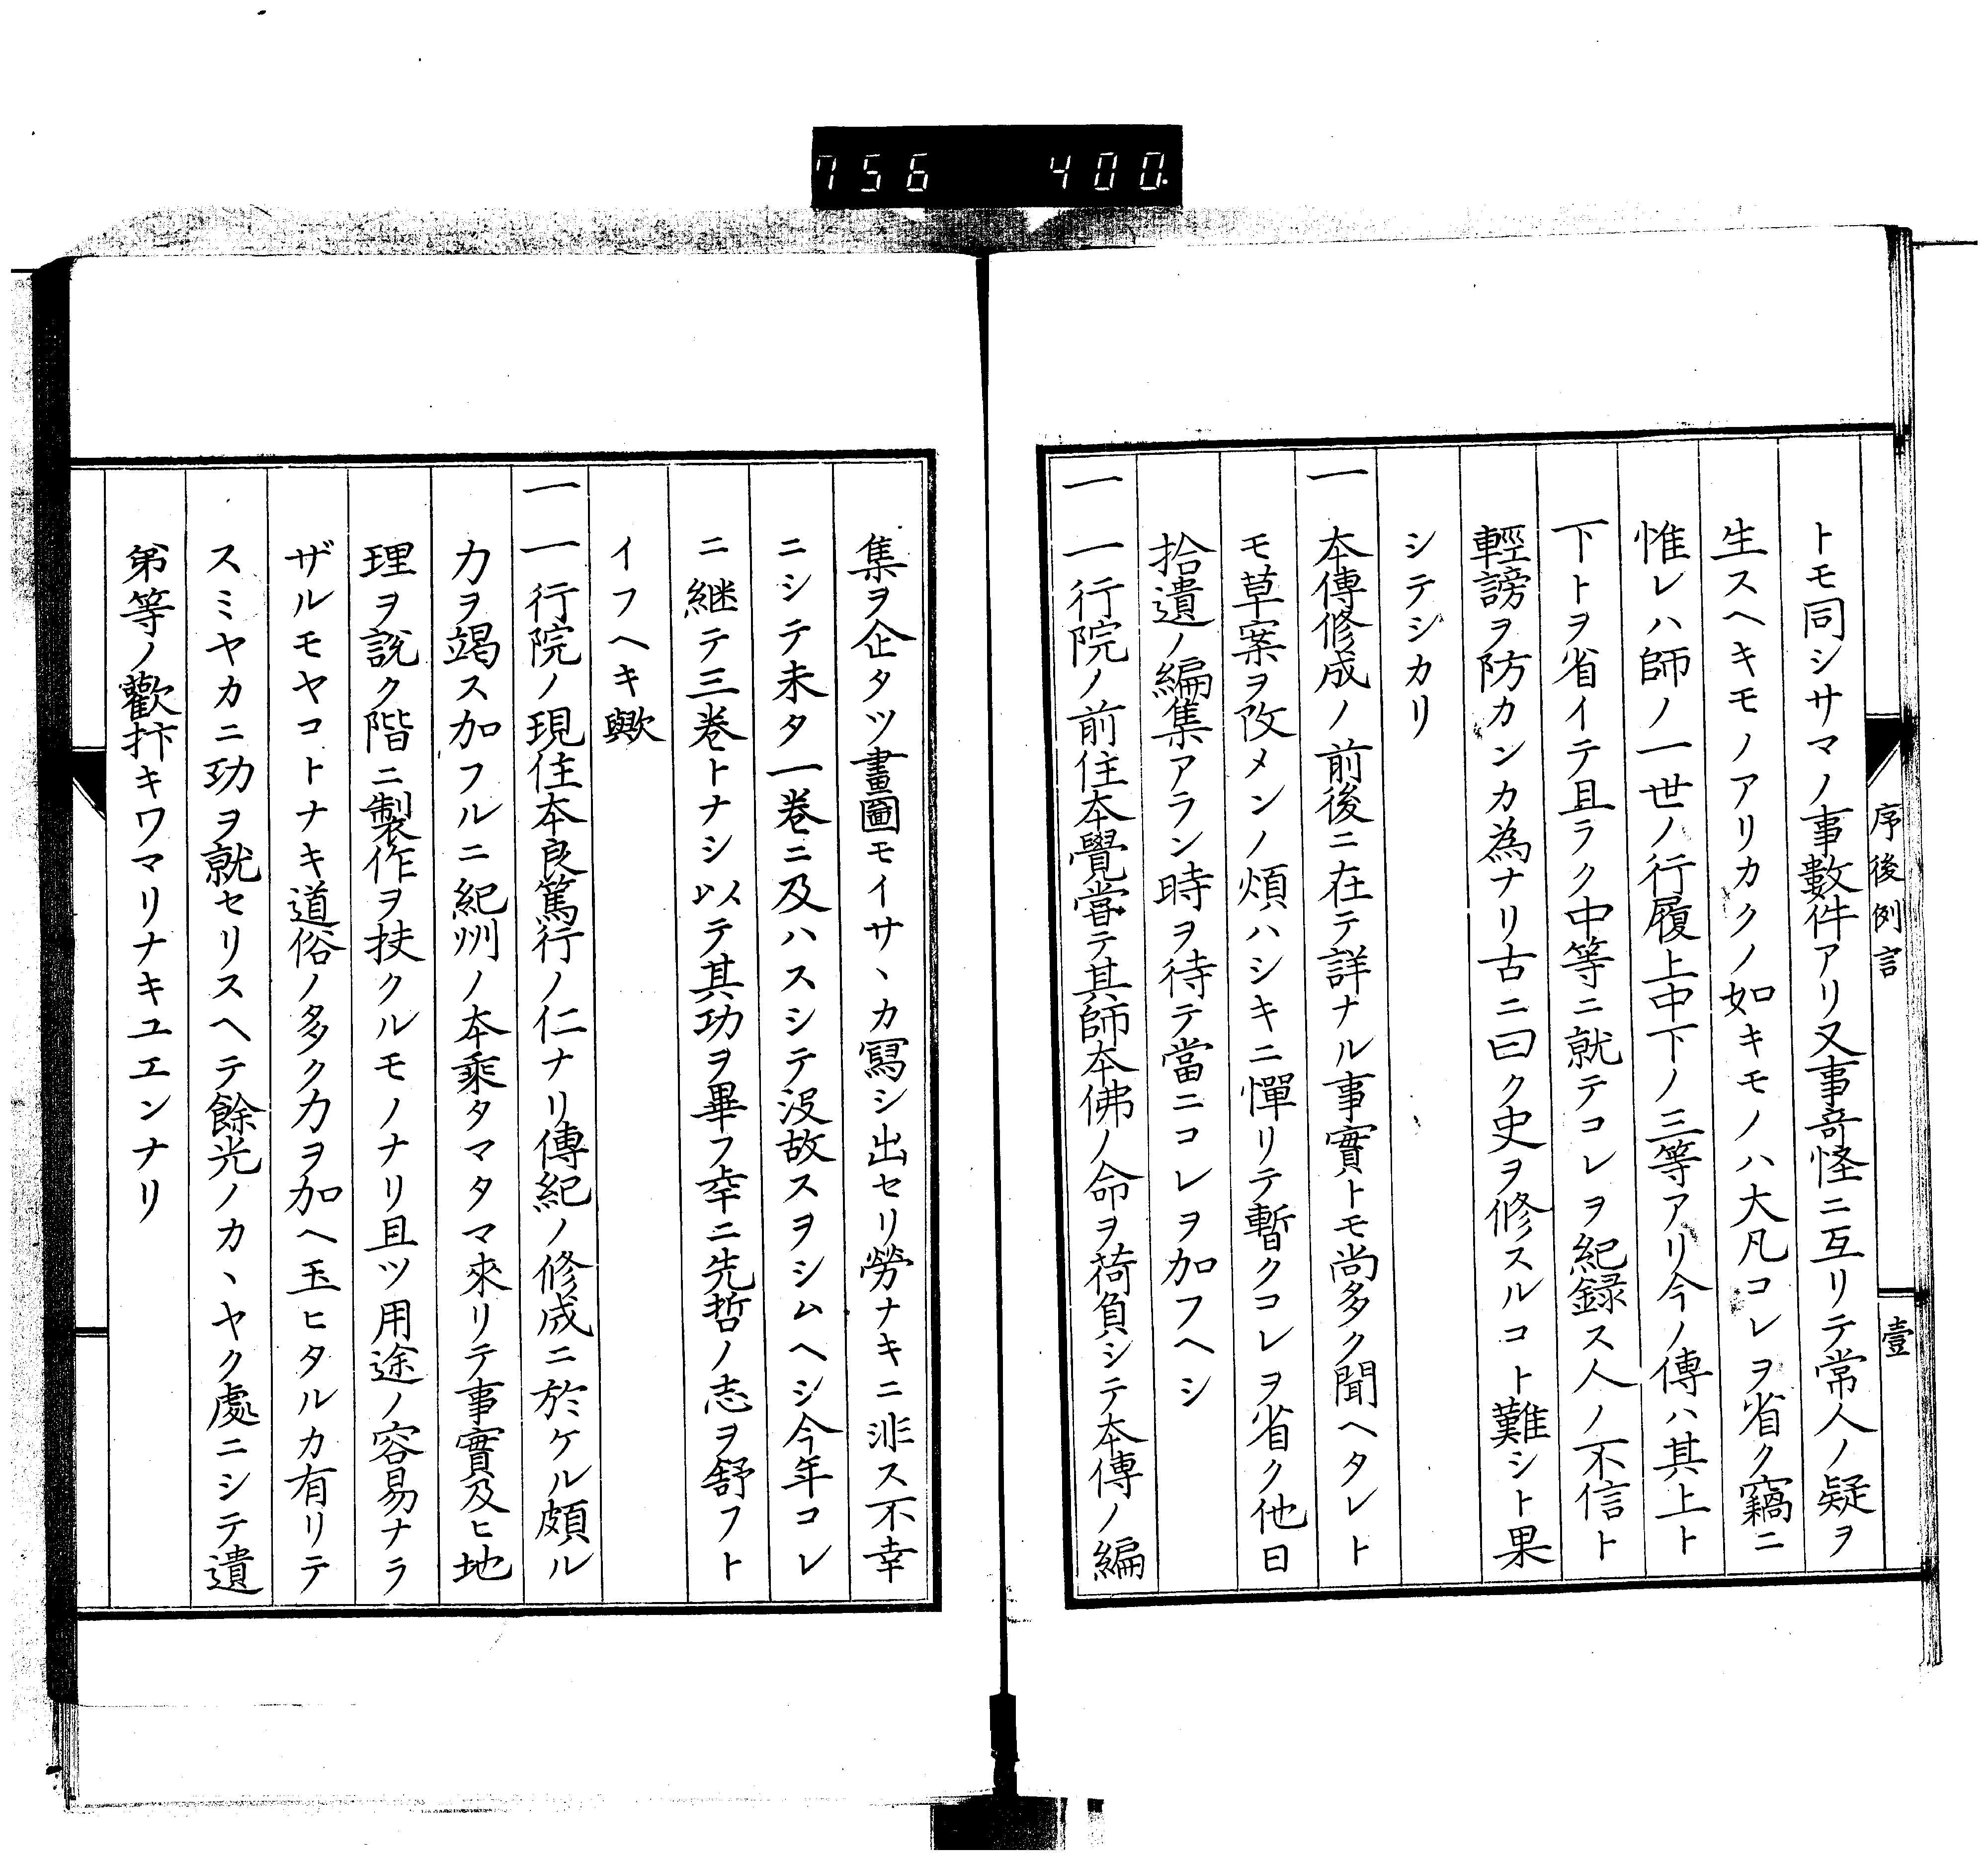 756 400.
序後例言
壹
トモ同シサマノ事數件アリ又事奇怪ニ互リテ常人ノ疑ヲ
生スヘキモノアリカクノ如キモノハ大凡コレヲ省ク竊ニ
惟レハ師ノ一世ノ行履上中下ノ三等アリ今ノ傳ハ其上ト
下トヲ省イテ且ラク中等ニ就テコレヲ紀録ス人ノ不信ト
輕謗ヲ防カンカ為ナリ古ニ曰ク史ヲ修スルコト難シト果
シテシカリ
一 本傳修成ノ前後ニ在テ詳ナル事實トモ尚多ク聞ヘタレト
モ草案ヲ改メンノ煩ハシキニ憚リテ暫クコレヲ省ク他日
拾遺ノ編集アラン時ヲ待テ當ニコレヲ加フヘシ
一 一行院ノ前住本覺嘗テ其師本佛ノ命ヲ荷負シテ本傳ノ編
集ヲ企タツ畫圖モイサヽカ寫シ出セリ勞ナキニ非ス不幸
ニシテ未タ一巻ニ及ハスシテ沒故スヲシムヘシ今年コレ
ニ継テ三巻トナシ以テ其功ヲ畢フ幸ニ先哲ノ志ヲ舒フト
イフヘキ歟
一 一行院ノ現住本良篤行ノ仁ナリ傳紀ノ修成ニ於ケル頗ル
力ヲ竭ス加フルニ紀州ノ本乘タマタマ來リテ事實及ヒ地
理ヲ説ク階ニ製作ヲ扶クルモノナリ且ツ用途ノ容易ナラ
ザルモヤコトナキ道俗ノ多ク力ヲ加ヘ玉ヒタルカ有リテ
スミヤカニ功ヲ就セリスヘテ餘光ノカヽヤク處ニシテ遺
弟等ノ歡抃キワマリナキユエンナリ